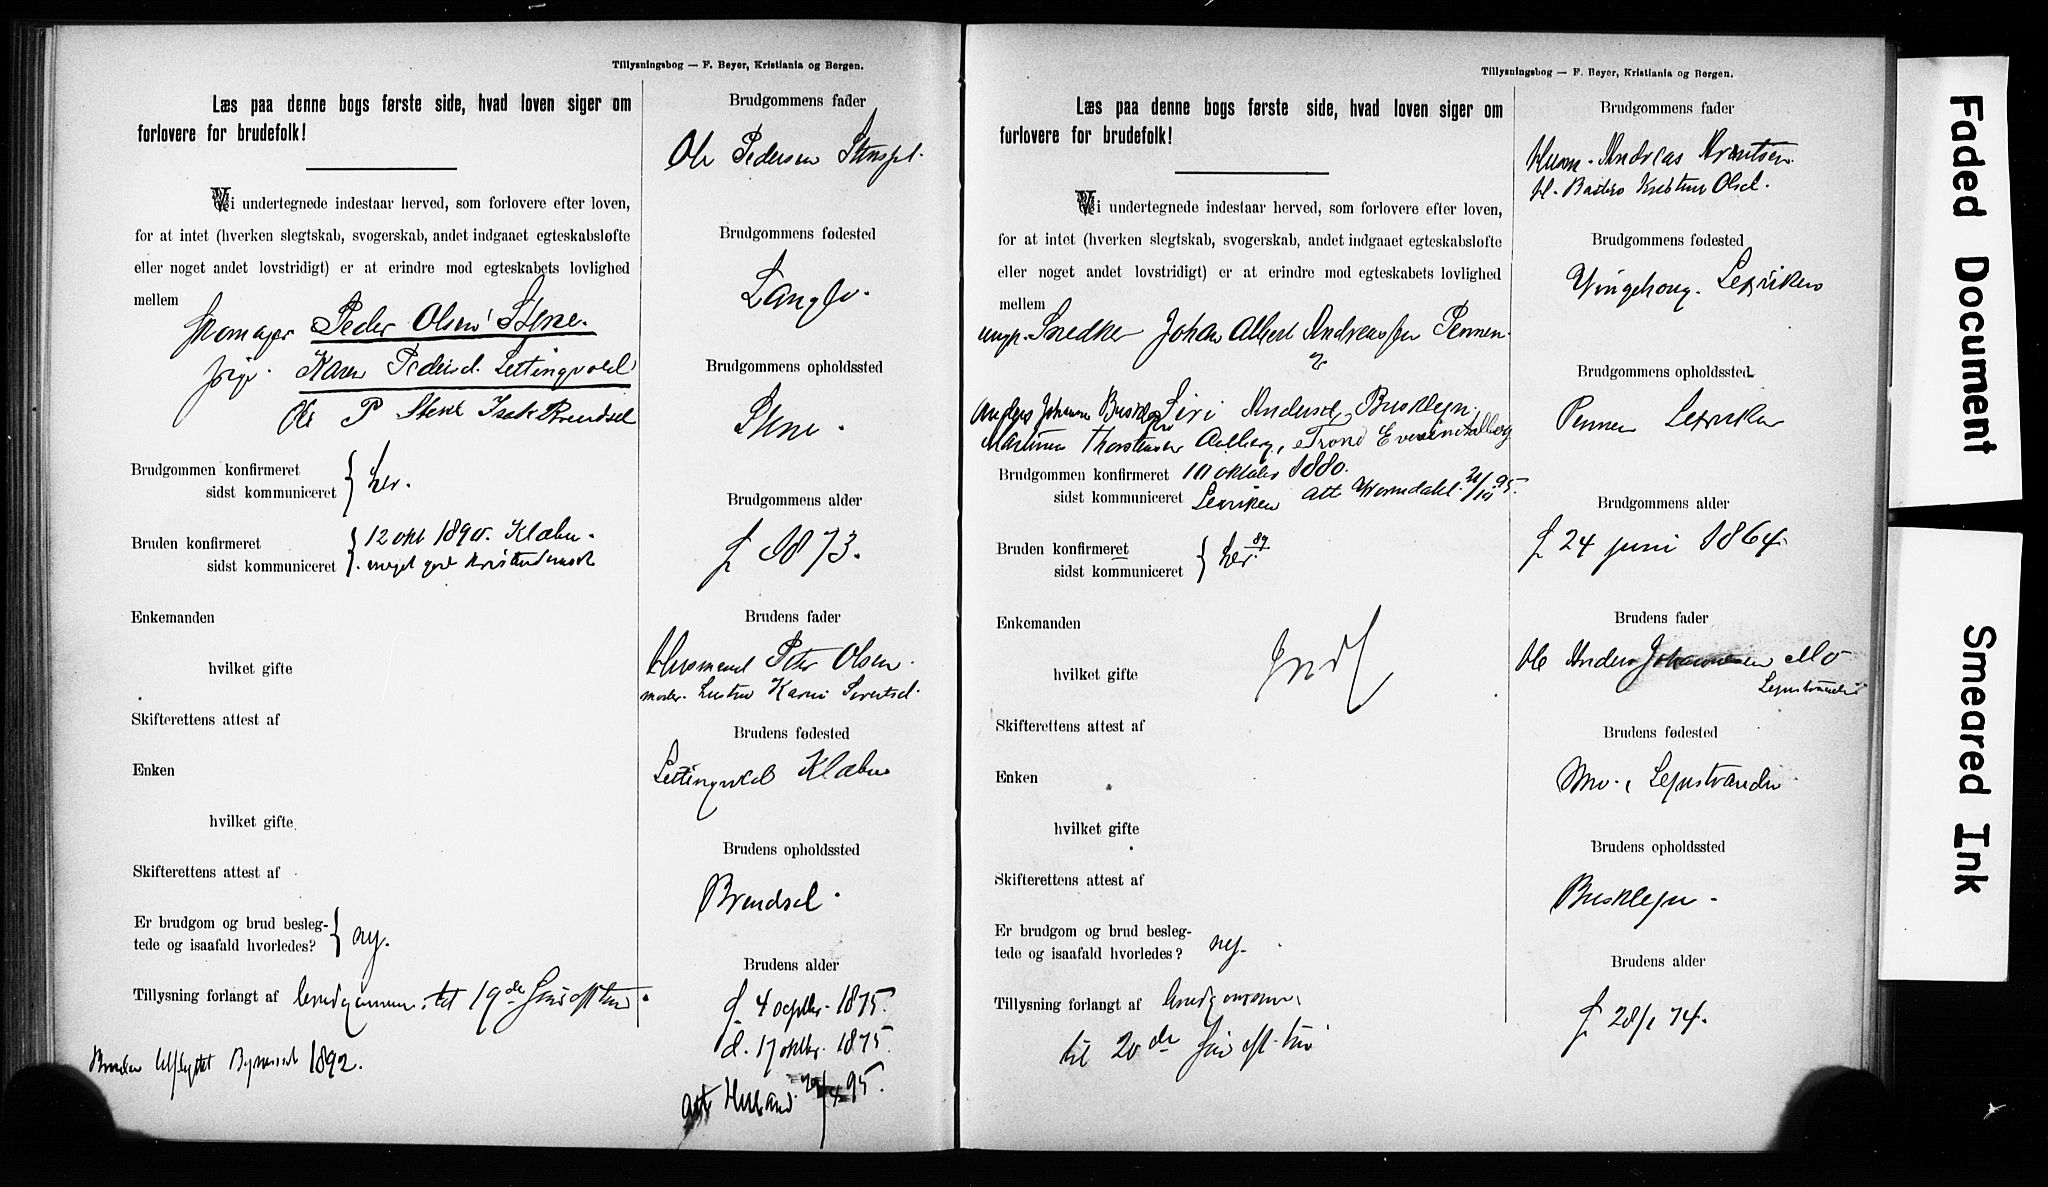 Tillysningsbog — F. Beyer, Kristiania og Bergen.
Læs paa denne bogs første side, hvad loven siger om
forlovere for brudefolk!
Vi undertegnede indestaar herved, som forlovere efter loven,
for at intet (hverken slegtskab, svogerskab, andet indgaaet egteskabsløfte
eller noget andet lovstridigt) er at erindre mod egteskabets lovlighed
mellem
Peder Olsen Stene.
Karen Pedersd. Settingvold
Ole P Stene Isak Brendsel
Brudgommen konfirmeret
sidst kommuniceret
her.
Bruden konfirmeret
sidst kommuniceret
12 okt 1890. Klæbu.
Enkemanden
hvilket gifte
Skifterettens attest af
Enken
hvilket gifte
Skifterettens attest af
Er brudgom og brud besleg-
tede og isaafald hvorledes?
nej.
Tillysning forlangt af brudgommen til 19de
Bruden udflyttet Bynesset 1892.
Brudgommens fader
Ole Pedersen
Brudgommens fødested
Langlo.
Brudgommens opholdssted
Stene.
Brudgommens alder
f 1873.
Brudens fader
Husmand Peter Olsen.
moder. Karen Sivertsd.
Brudens fødested
Settingvold Klæbu
Brudens opholdssted
Brendsel.
Brudens alder
f. 4 septbr. 1875.
d. 17 oktbr. 1875.
att 95.
Tillysningsbog — F. Beyer, Kristiania og Bergen.
Læs paa denne bogs første side, hvad loven siger om
forlovere for brudefolk!
Vi undertegnede indestaar herved, som forlovere efter loven,
for at intet (hverken slegtskab, svogerskab, andet indgaaet egteskabsløfte
eller noget andet lovstridigt) er at erindre mod egteskabets lovlighed
mellem
ungk. Snedker Johan Albert Andreassen Pennen.
Siri Andersd. Busklejn
Martinus Thorstensen Aalberg, Trond
Brudgommen konfirmeret 10 oktober 1880.
sidst kommuniceret Lexviken att 95.
Bruden konfirmeret
sidst kommuniceret
her. 89
Enkemanden
hvilket gifte
Skifterettens attest af
Enken
hvilket gifte
Skifterettens attest af
Er brudgom og brud besleg-
tede og isaafald hvorledes?
nej.
Tillysning forlangt af brudgommen
til 20de
Brudgommens fader
Husm. Andreas Arntsen.
Olsd.
Brudgommens fødested
Vingehoug. Lexviken
Brudgommens opholdssted
Pennen Lexviken
Brudgommens alder
f 24 juni 1864.
Brudens fader
Anders Johannesen Mo
Lejnstranden
Brudens fødested
Mo. Lejnstranden.
Brudens opholdssted
Busklejn.
Brudens alder
f 28/1 74.
Faded Document
Smeared Ink